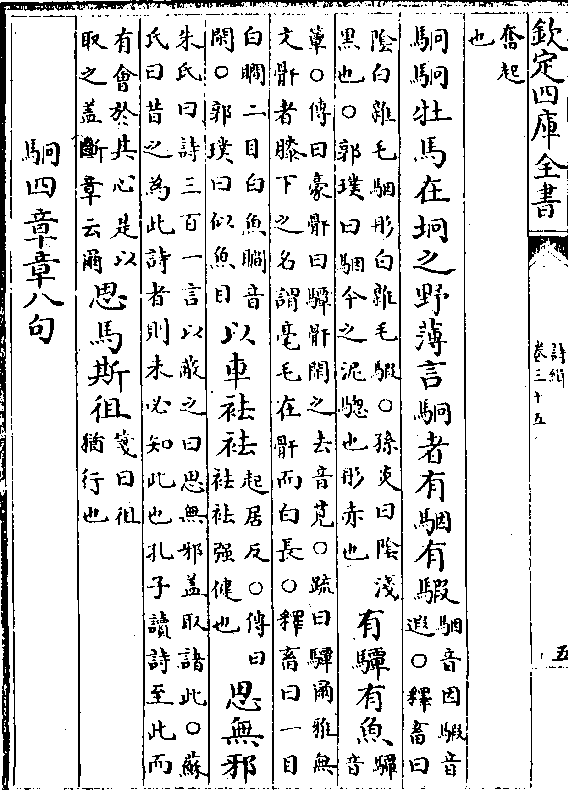 欽定四庫全書
詩緝
卷三十五
五
奮起
也
駉駉牡馬在坰之野薄言駉者有駰有騢駰音因騢音
遐○釋畜曰
陰白雜毛駰彤白雜毛騢○孫炎曰陰淺
黑也○郭璞曰駰今之泥驄也彤赤也
有驔有魚驔
音
簟○傳曰豪骭曰驔骭閑之去音莧○疏曰驔爾雅無
文骭者膝下之名謂毫毛在骭而白長○釋畜曰一目
白瞯二目白魚瞯音
閑○郭璞曰似魚目
以車祛祛起居反○傳曰
祛祛强健也
思無邪
朱氏曰詩三百一言以蔽之曰思無邪蓋取諸此○蘇
氏曰昔之為此詩者則未必知此也孔子讀詩至此而
有會於其心是以
取之蓋斷章云爾
思馬斯徂箋曰徂
猶行也
駉四章章八句